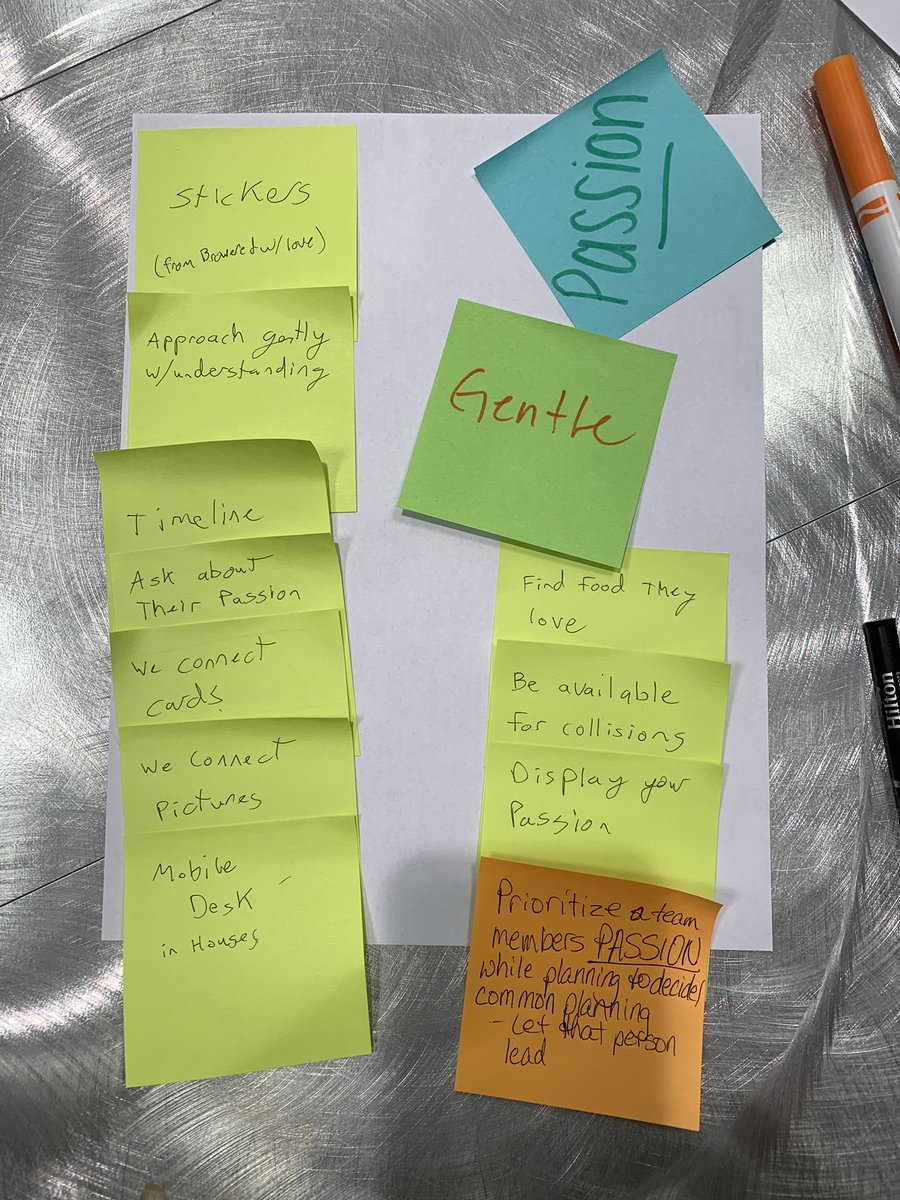 Stickers
(from Browered w/ love)
Approach gently
w/understanding
Timeline
Ask about
Their Passion
We connect
cards
We Connect
Pictures
Mobile
Desk
in Houses
Passion
Gentle
Find food They
love
Be available
for collisions
Display your
Passion
Prioritize a team
members PASSION
while planning to decide/
common planning
- Let that person
lead
Hilton